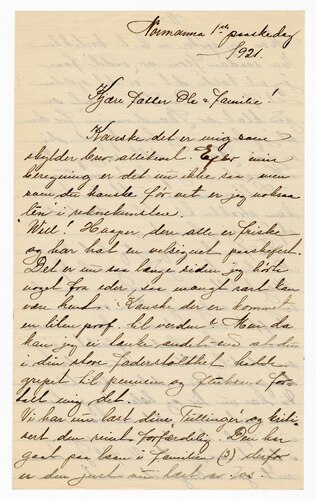 Normanna 1ste paaskedag
1921.
Kjære Fætter Ole & Familie!
Kanske det er mig som
skylder brev, allikevel. Efter min
beregning er det nu ikke saa, men
som du kanske før vet er jeg noksaa
liten i reknekunsten.
"Well". Haaper dere alle er friske
og har hat en velsignet paaskefest.
Det er nu saa længe siden jeg hørte
noget fra eder, saa mangt rart kan
være hendt. Kanske der er kommet
en liten prof. til verden? Men da
kan jeg ei tænke andet enn at du
i din store faderstolthet hadde
grepet til pennen og fortalt mig det.
Vi har nu læst dine "Tillinger" og kriti-
sert den rent forfærdelig. Den har
gaat paa laan i familien (3) derfor
er den just nu læst av os.